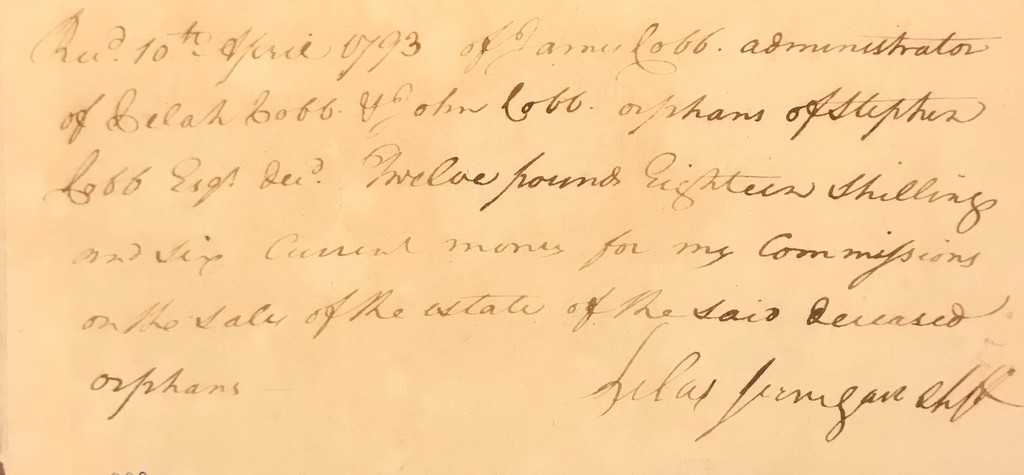 Rec.d 10th April 1793 of James Cobb. administrator
of Selah Cobb. & John Cobb. orphans of Stephen
Cobb Esqr. dec.d Twelve pounds Eighteen Shillings
and six Current money for my Commissions
on the sales of the estate of the said deceased
orphans
Silas Jernigan Shff